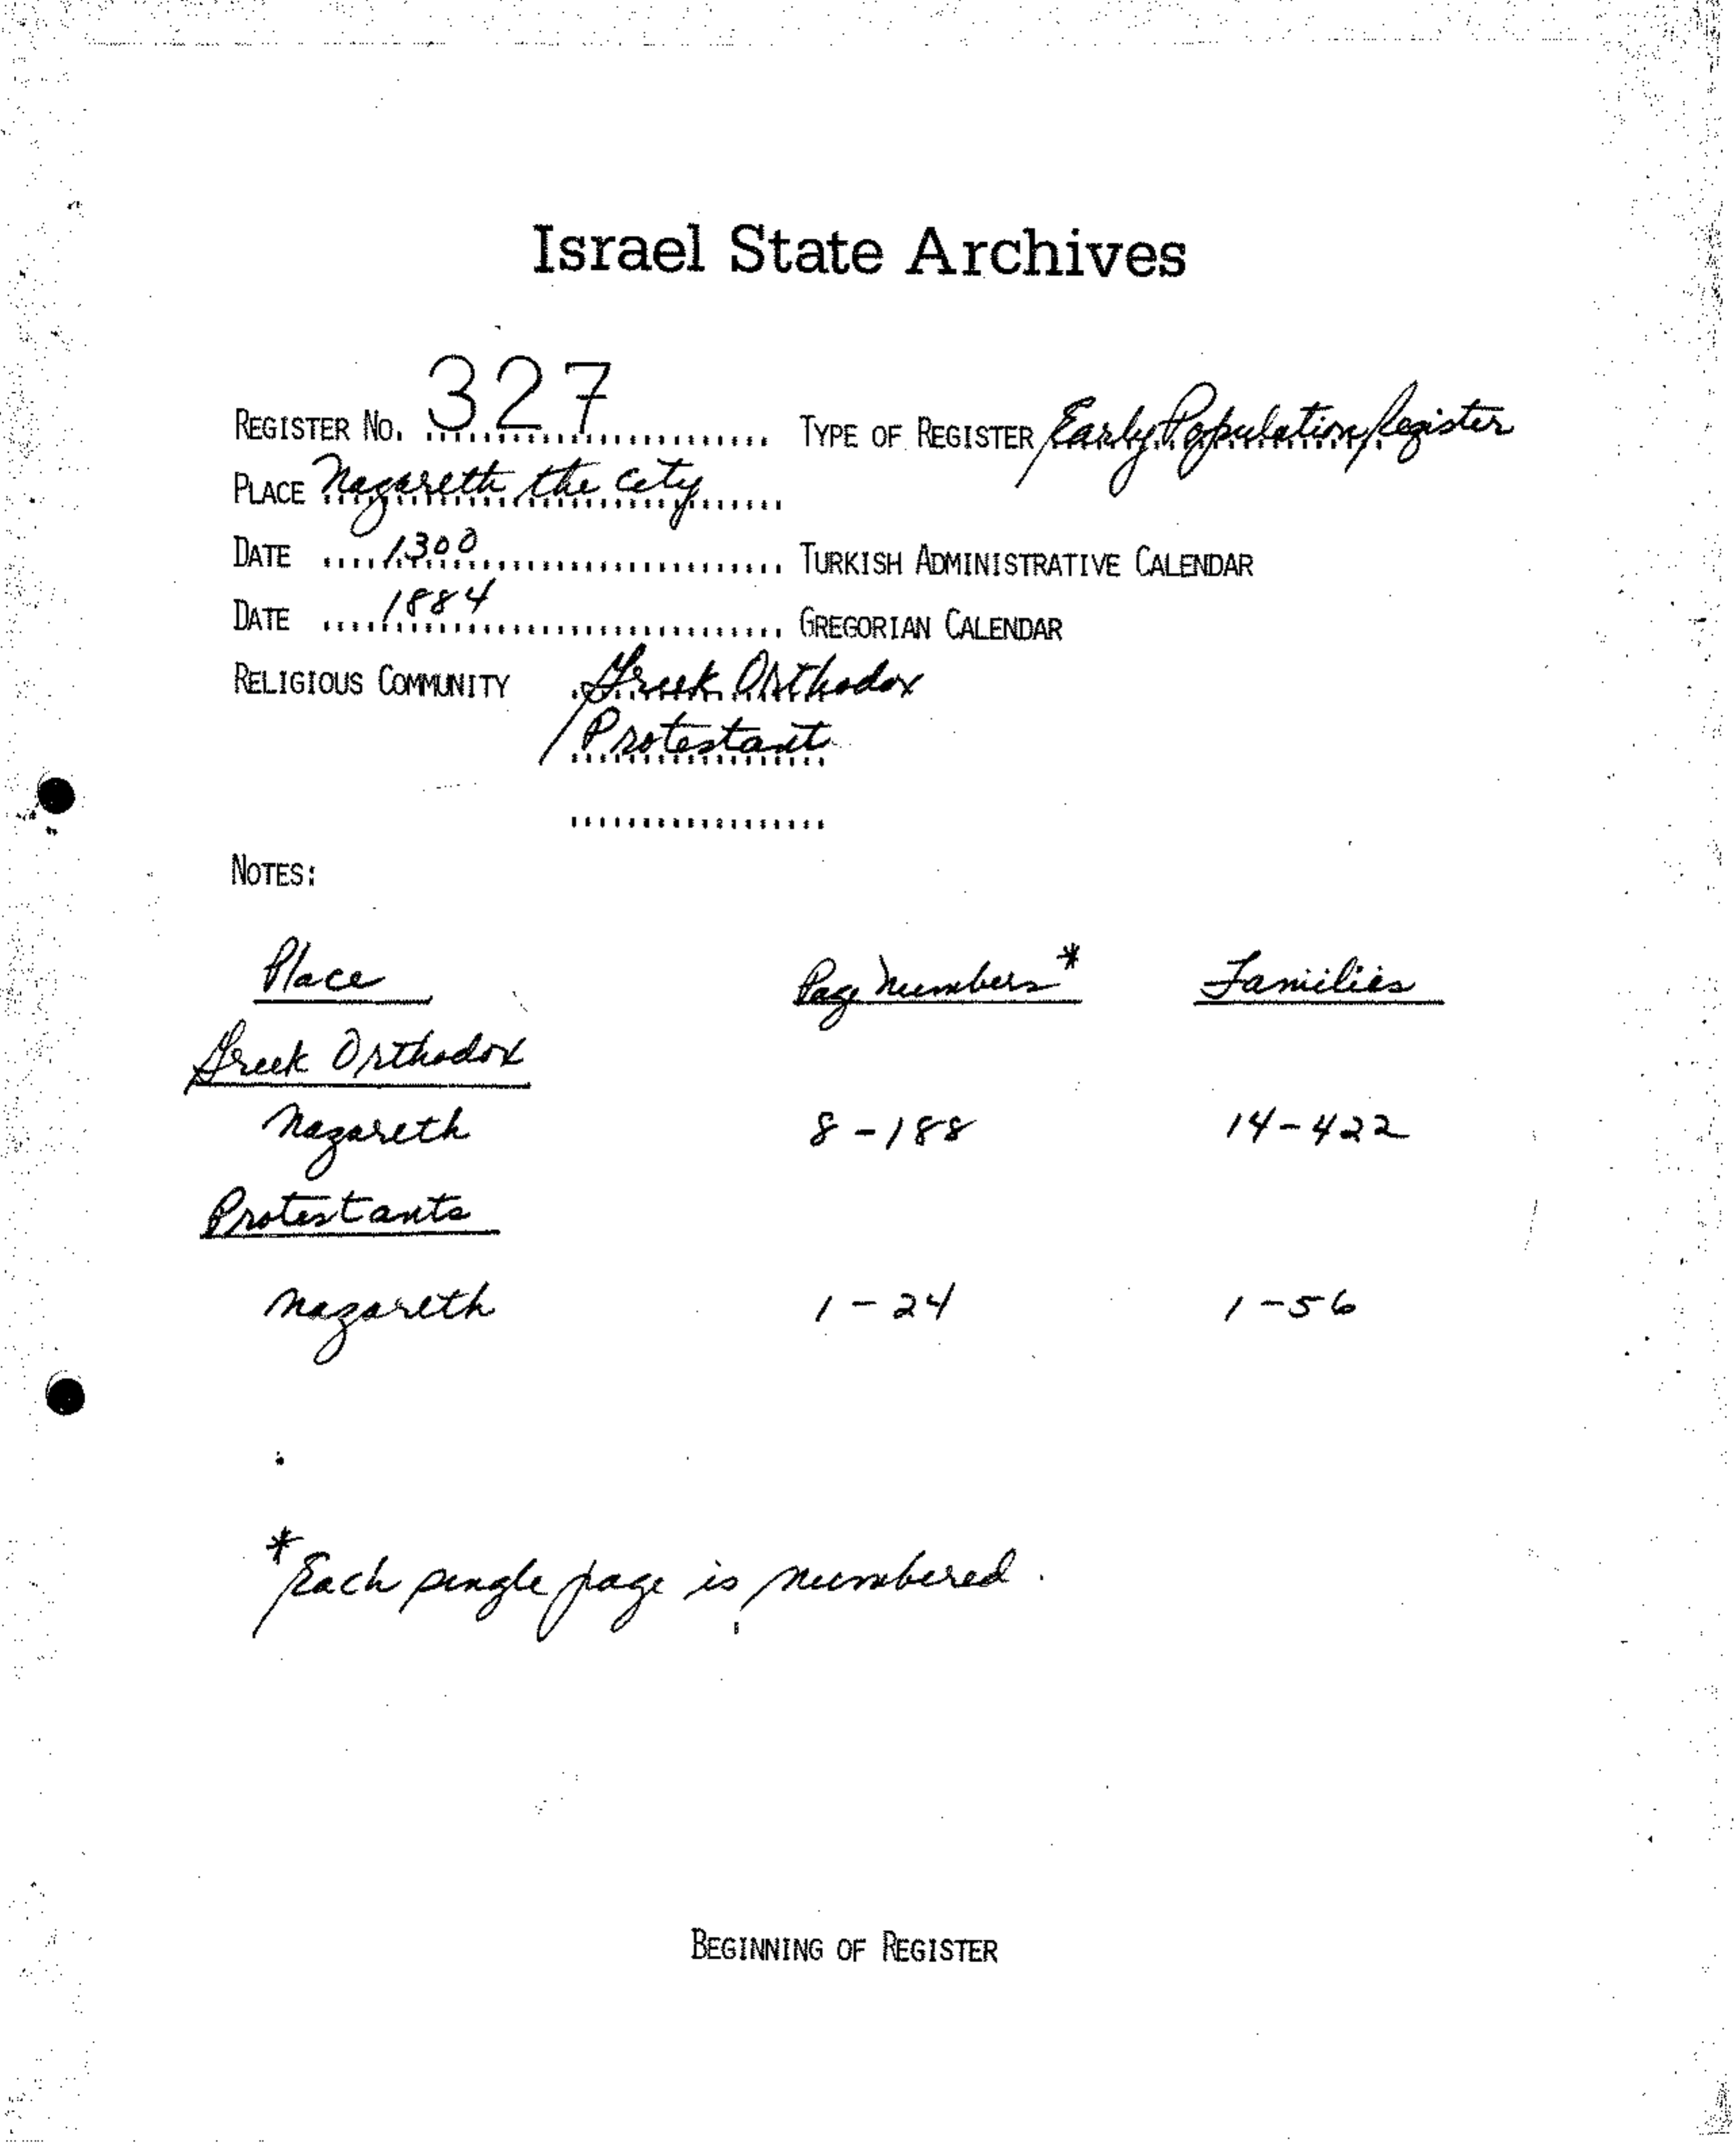 Israel State Archives
REGISTER NO. 327 TYPE OF REGISTER Early Population Register
PLACE Nazareth the city
DATE 1300 TURKISH ADMINISTRATIVE CALENDAR
DATE 1884 GREGORIAN CALENDAR
RELIGIOUS COMMUNITY Greek Orthodox
Protestant
NOTES:
Place Page Numbers* Families
Greek Orthodox
Nazareth 8-188 14-422
Protestants
Nazareth 1-24 1-56
*Each single page is numbered.
BEGINNING OF REGISTER